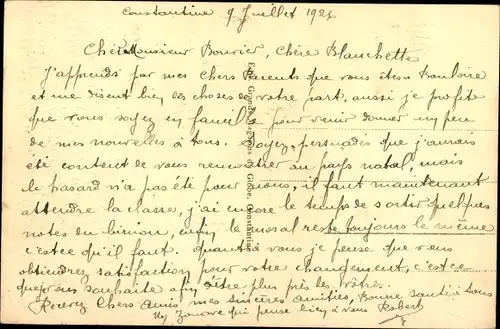 Constantine 9 Juillet 192
Cher Monsieur Bouvier, Chère Blanchette
J'apprends par mes chers Parents que vous êtes à Bouloire
et me disent bien les choses de votre part, aussi je profite
que vous soyez en famille pour venir donner un peu
de mes nouvelles à tous. Soyez persuadés que j'aurais
été content de vous rencontrer au pays natal, mais
le hasard n'a pas été pour nous, il faut maintenant
attendre la classe, j'ai encore le temps de sortir quelques
notes du, enfin le moral reste toujours le même
c'est ce qu'il faut. Quant à vous je pense que vous
obtiendrez satisfaction pour votre changement, c'est ce
que vous souhaite afin d'être plus près les vôtres.
Recevez Chers Amis mes sincères amitiés, Bonne santé à tous
Un Zouave qui pense bien à vous Robert
Edit. Grand Bazar du Globe, Constantine